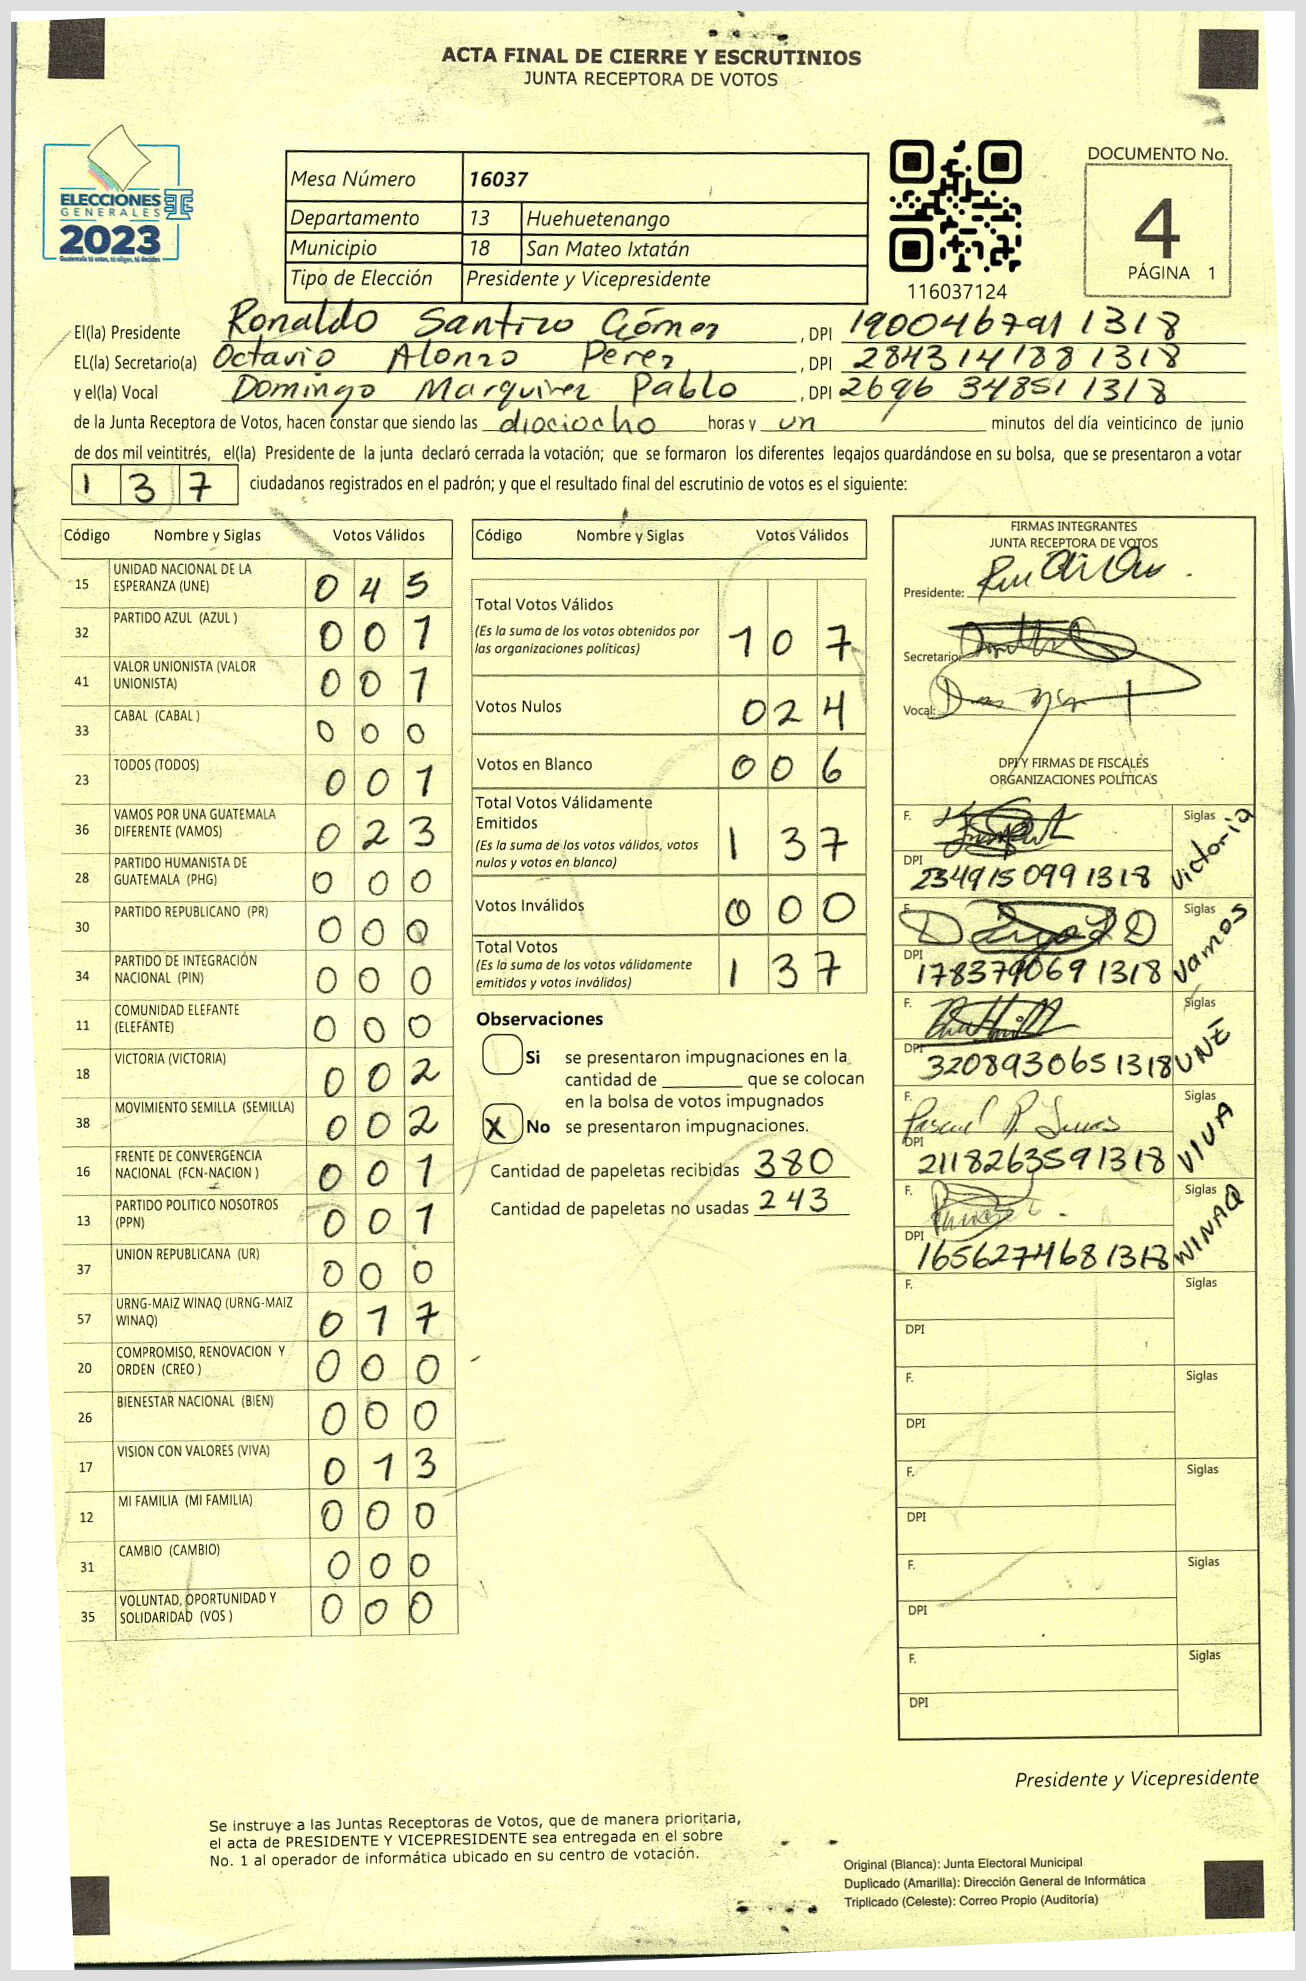 ACTA FINAL DE CIERRE Y ESCRUTINIOS
JUNTA RECEPTORA DE VOTOS
ELECCIONES
GENERALES
2023
Guatemala tú votas, tú eliges, tú decides
Mesa Número 16037
Departamento 13 Huehuetenango
Municipio 18 San Mateo Ixtatán
Tipo de Elección Presidente y Vicepresidente
116037124
DOCUMENTO No.
4
PÁGINA 1
El(la) Presidente Ronaldo Santizo Gómez, DPI 1900467911318
EL(la) Secretario(a) Octavio Alonzo Perez, DPI 2843141881318
y el(la) Vocal Domingo Marquinez Pablo, DPI 2696 348511318
de la Junta Receptora de Votos, hacen constar que siendo las diociocho horas y un minutos del día veinticinco de junio
de dos mil veintitrés, el(la) Presidente de la junta declaró cerrada la votación; que se formaron los diferentes legajos guardándose en su bolsa, que se presentaron a votar
1 3 7 ciudadanos registrados en el padrón; y que el resultado final del escrutinio de votos es el siguiente:
Código Nombre y Siglas Votos Válidos
15 UNIDAD NACIONAL DE LA ESPERANZA (UNE) 0 4 5
32 PARTIDO AZUL (AZUL ) 0 0 1
41 VALOR UNIONISTA (VALOR UNIONISTA) 0 0 1
33 CABAL (CABAL ) 0 0 0
23 TODOS (TODOS) 0 0 1
36 VAMOS POR UNA GUATEMALA DIFERENTE (VAMOS) 0 2 3
28 PARTIDO HUMANISTA DE GUATEMALA (PHG) 0 0 0
30 PARTIDO REPUBLICANO (PR) 0 0 0
34 PARTIDO DE INTEGRACIÓN NACIONAL (PIN) 0 0 0
11 COMUNIDAD ELEFANTE (ELEFANTE) 0 0 0
18 VICTORIA (VICTORIA) 0 0 2
38 MOVIMIENTO SEMILLA (SEMILLA) 0 0 2
16 FRENTE DE CONVERGENCIA NACIONAL (FCN-NACION ) 0 0 1
13 PARTIDO POLITICO NOSOTROS (PPN) 0 0 1
37 UNION REPUBLICANA (UR) 0 0 0
57 URNG-MAIZ WINAQ (URNG-MAIZ WINAQ) 0 1 7
20 COMPROMISO, RENOVACION Y ORDEN (CREO ) 0 0 0
26 BIENESTAR NACIONAL (BIEN) 0 0 0
17 VISION CON VALORES (VIVA) 0 1 3
12 MI FAMILIA (MI FAMILIA) 0 0 0
31 CAMBIO (CAMBIO) 0 0 0
35 VOLUNTAD, OPORTUNIDAD Y SOLIDARIDAD (VOS ) 0 0 0
Código Nombre y Siglas Votos Válidos
Total Votos Válidos
(Es la suma de los votos obtenidos por
las organizaciones políticas) 1 0 7
Votos Nulos 0 2 4
Votos en Blanco 0 0 6
Total Votos Válidamente
Emitidos
(Es la suma de los votos válidos, votos
nulos y votos en blanco) 1 3 7
Votos Inválidos 0 0 0
Total Votos
(Es la suma de los votos válidamente
emitidos y votos inválidos) 1 3 7
Observaciones
Si se presentaron impugnaciones en la
cantidad de ________ que se colocan
en la bolsa de votos impugnados
X No se presentaron impugnaciones.
Cantidad de papeletas recibidas 380
Cantidad de papeletas no usadas 243
FIRMAS INTEGRANTES
JUNTA RECEPTORA DE VOTOS
Presidente:
Secretario:
Vocal:
DPI Y FIRMAS DE FISCALES
ORGANIZACIONES POLÍTICAS
F. Siglas Victoria
DPI 2349150991318
F. Siglas Vamos
DPI 1783790691318
F. Siglas UNE
DPI 3208930651318
F. Siglas VIVA
DPI 2118263591318
F. Siglas WINAQ
DPI 1656274681318
F. Siglas
DPI
F. Siglas
DPI
F. Siglas
DPI
F. Siglas
DPI
F. Siglas
DPI
Presidente y Vicepresidente
Se instruye a las Juntas Receptoras de Votos, que de manera prioritaria,
el acta de PRESIDENTE Y VICEPRESIDENTE sea entregada en el sobre
No. 1 al operador de informática ubicado en su centro de votación.
Original (Blanca): Junta Electoral Municipal
Duplicado (Amarilla): Dirección General de Informática
Triplicado (Celeste): Correo Propio (Auditoría)